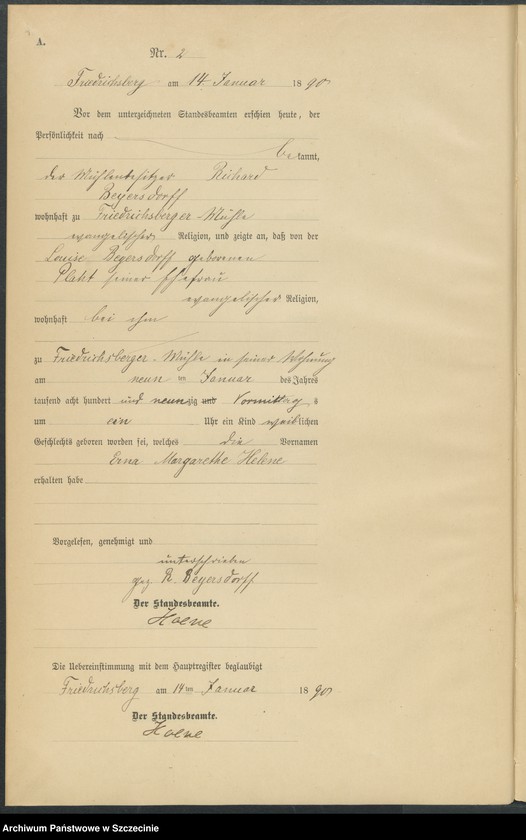 A.
Nr. 2
Friedrichsberg am 14. Januar 1890
Vor dem unterzeichneten Standesbeamten erschien heute, der
Persönlichkeit nach
bekannt,
der Mühlenbesitzer Richard
Beyersdorff
wohnhaft zu Friedrichsberger-Mühle
evangelischer Religion, und zeigte an, daß von der
Louise Beyersdorff geborenen
seiner Ehefrau
evangelischer Religion,
wohnhaft bei ihm
zu Friedrichsberger-Mühle in seiner Wohnung
am neun ten Januar des Jahres
tausend acht hundert und neunzig und Vormittags
um ein Uhr ein Kind weiblichen
Geschlechts geboren worden sei, welches die Vornamen
Erna Margarethe Helene
erhalten habe
Vorgelesen, genehmigt und
unterschrieben
gez. R. Beyersdorff
Der Standesbeamte.
Hoene
Die Uebereinstimmung mit dem Hauptregister beglaubigt
Friedrichsberg am 14ten Januar 1890
Der Standesbeamte.
Hoene
Archiwum Państwowe w Szczecinie